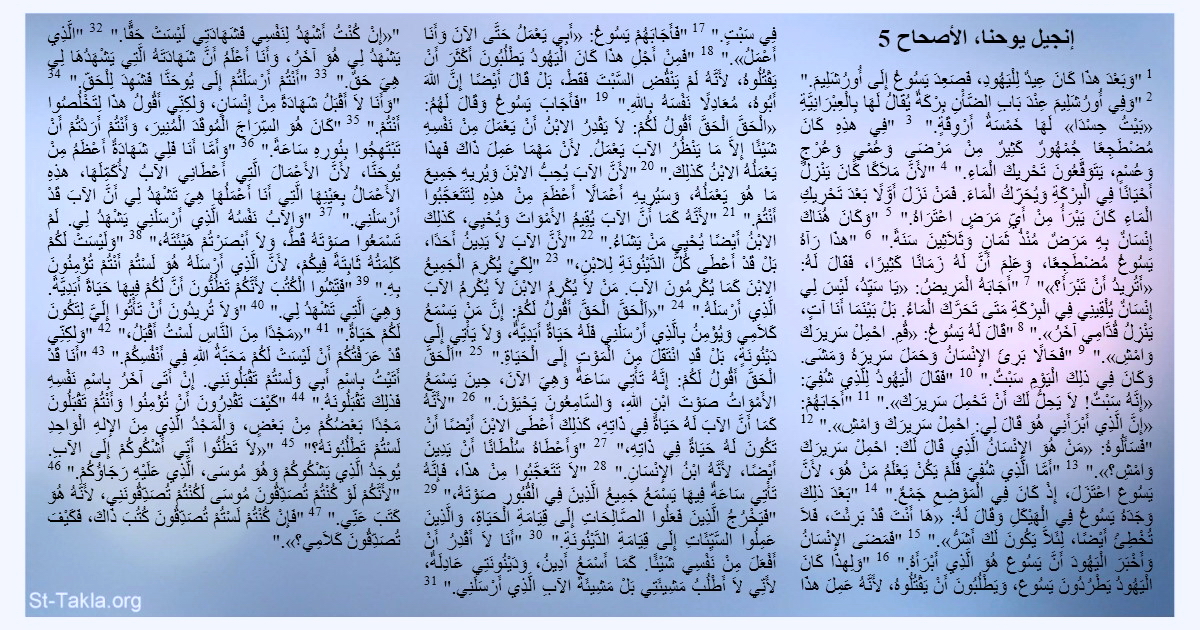 إنجيل يوحنا، الأصحاح 5
1 "وَبَعْدَ هذَا كَانَ عِيدٌ لِلْيَهُودِ، فَصَعِدَ يَسُوعُ إِلَى أُورُشَلِيمَ."
2 "وَفِي أُورُشَلِيمَ عِنْدَ بَابِ الضَّأْنِ بِرْكَةٌ يُقَالُ لَهَا بِالْعِبْرَانِيَّةِ
«بَيْتُ حِسْدَا» لَهَا خَمْسَةُ أَرْوِقَةٍ." 3 "فِي هذِهِ كَانَ
مُضْطَجِعًا جُمْهُورٌ كَثِيرٌ مِنْ مَرْضَى وَعُمْيٍ وَعُرْجٍ
وَعُسْمٍ، يَتَوَقَّعُونَ تَحْرِيكَ الْمَاءِ." 4 "لأَنَّ مَلاَكًا كَانَ يَنْزِلُ
أَحْيَانًا فِي الْبِرْكَةِ وَيُحَرِّكُ الْمَاءَ. فَمَنْ نَزَلَ أَوَّلاً بَعْدَ تَحْرِيكِ
الْمَاءِ كَانَ يَبْرَأُ مِنْ أَيِّ مَرَضٍ اعْتَرَاهُ." 5 "وَكَانَ هُنَاكَ
إِنْسَانٌ بِهِ مَرَضٌ مُنْذُ ثَمَانٍ وَثَلاَثِينَ سَنَةً." 6 "هذَا رَآهُ
يَسُوعُ مُضْطَجِعًا، وَعَلِمَ أَنَّ لَهُ زَمَانًا كَثِيرًا، فَقَالَ لَهُ:
«أَتُرِيدُ أَنْ تَبْرَأَ؟»" 7 "أَجَابَهُ الْمَرِيضُ: «يَا سَيِّدُ، لَيْسَ لِي
إِنْسَانٌ يُلْقِينِي فِي الْبِرْكَةِ مَتَى تَحَرَّكَ الْمَاءُ. بَلْ بَيْنَمَا أَنَا آتٍ،
يَنْزِلُ قُدَّامِي آخَرُ»." 8 "قَالَ لَهُ يَسُوعُ: «قُمِ. احْمِلْ سَرِيرَكَ
وَامْشِ»." 9 "فَحَالاً بَرِئَ الإِنْسَانُ وَحَمَلَ سَرِيرَهُ وَمَشَى.
وَكَانَ فِي ذلِكَ الْيَوْمِ سَبْتٌ." 10 "فَقَالَ الْيَهُودُ لِلَّذِي شُفِيَ:
«إِنَّهُ سَبْتٌ! لاَ يَحِلُّ لَكَ أَنْ تَحْمِلَ سَرِيرَكَ»." 11 "أَجَابَهُمْ:
«إِنَّ الَّذِي أَبْرَأَنِي هُوَ قَالَ لِي: احْمِلْ سَرِيرَكَ وَامْشِ»." 12
"فَسَأَلُوهُ: «مَنْ هُوَ الإِنْسَانُ الَّذِي قَالَ لَكَ: احْمِلْ سَرِيرَكَ
وَامْشِ؟»." 13 "أَمَّا الَّذِي شُفِيَ فَلَمْ يَكُنْ يَعْلَمُ مَنْ هُوَ، لأَنَّ
يَسُوعَ اعْتَزَلَ، إِذْ كَانَ فِي الْمَوْضِعِ جَمْعٌ." 14 "بَعْدَ ذلِكَ
وَجَدَهُ يَسُوعُ فِي الْهَيْكَلِ وَقَالَ لَهُ: «هَا أَنْتَ قَدْ بَرِئْتَ، فَلاَ
تُخْطِئْ أَيْضًا، لِئَلاَّ يَكُونَ لَكَ أَشَرُّ»." 15 "فَمَضَى الإِنْسَانُ
وَأَخْبَرَ الْيَهُودَ أَنَّ يَسُوعَ هُوَ الَّذِي أَبْرَأَهُ." 16 "وَلِهذَا كَانَ
الْيَهُودُ يَطْرُدُونَ يَسُوعَ، وَيَطْلُبُونَ أَنْ يَقْتُلُوهُ، لأَنَّهُ عَمِلَ هذَا
فِي سَبْتٍ." 17 "فَأَجَابَهُمْ يَسُوعُ: «أَبِي يَعْمَلُ حَتَّى الآنَ وَأَنَا
أَعْمَلُ»." 18 "فَمِنْ أَجْلِ هذَا كَانَ الْيَهُودُ يَطْلُبُونَ أَكْثَرَ أَنْ
يَقْتُلُوهُ، لأَنَّهُ لَمْ يَنْقُضِ السَّبْتَ فَقَطْ، بَلْ قَالَ أَيْضًا إِنَّ اللهَ
أَبُوهُ، مُعَادِلاً نَفْسَهُ بِاللهِ." 19 "فَأَجَابَ يَسُوعُ وَقَالَ لَهُمُ:
«الْحَقَّ الْحَقَّ أَقُولُ لَكُمْ: لاَ يَقْدِرُ الابْنُ أَنْ يَعْمَلَ مِنْ نَفْسِهِ
شَيْئًا إِلاَّ مَا يَنْظُرُ الآبَ يَعْمَلُ. لأَنْ مَهْمَا عَمِلَ ذَاكَ فَهذَا
يَعْمَلُهُ الابْنُ كَذلِكَ." 20 "لأَنَّ الآبَ يُحِبُّ الابْنَ وَيُرِيهِ جَمِيعَ
مَا هُوَ يَعْمَلُهُ، وَسَيُرِيهِ أَعْمَالاً أَعْظَمَ مِنْ هذِهِ لِتَتَعَجَّبُوا
أَنْتُمْ." 21 "لأَنَّهُ كَمَا أَنَّ الآبَ يُقِيمُ الأَمْوَاتَ وَيُحْيِي، كَذلِكَ
الابْنُ أَيْضًا يُحْيِي مَنْ يَشَاءُ." 22 "لأَنَّ الآبَ لاَ يَدِينُ أَحَدًا،
بَلْ قَدْ أَعْطَى كُلَّ الدَّيْنُونَةِ لِلابْنِ،" 23 "لِكَيْ يُكْرِمَ الْجَمِيعُ
الابْنَ كَمَا يُكْرِمُونَ الآبَ. مَنْ لاَ يُكْرِمُ الابْنَ لاَ يُكْرِمُ الآبَ
الَّذِي أَرْسَلَهُ." 24 "«اَلْحَقَّ الْحَقَّ أَقُولُ لَكُمْ: إِنَّ مَنْ يَسْمَعُ
كَلاَمِي وَيُؤْمِنُ بِالَّذِي أَرْسَلَنِي فَلَهُ حَيَاةٌ أَبَدِيَّةٌ، وَلاَ يَأْتِي إِلَى
دَيْنُونَةٍ، بَلْ قَدِ انْتَقَلَ مِنَ الْمَوْتِ إِلَى الْحَيَاةِ." 25 "اَلْحَقَّ
الْحَقَّ أَقُولُ لَكُمْ: إِنَّهُ تَأْتِي سَاعَةٌ وَهِيَ الآنَ، حِينَ يَسْمَعُ
الأَمْوَاتُ صَوْتَ ابْنِ اللهِ، وَالسَّامِعُونَ يَحْيَوْنَ." 26 "لأَنَّهُ
كَمَا أَنَّ الآبَ لَهُ حَيَاةٌ فِي ذَاتِهِ، كَذلِكَ أَعْطَى الابْنَ أَيْضًا أَنْ
تَكُونَ لَهُ حَيَاةٌ فِي ذَاتِهِ،" 27 "وَأَعْطَاهُ سُلْطَانًا أَنْ يَدِينَ
أَيْضًا، لأَنَّهُ ابْنُ الإِنْسَانِ." 28 "لاَ تَتَعَجَّبُوا مِنْ هذَا، فَإِنَّهُ
تَأْتِي سَاعَةٌ فِيهَا يَسْمَعُ جَمِيعُ الَّذِينَ فِي الْقُبُورِ صَوْتَهُ،" 29
"فَيَخْرُجُ الَّذِينَ فَعَلُوا الصَّالِحَاتِ إِلَى قِيَامَةِ الْحَيَاةِ، وَالَّذِينَ
عَمِلُوا السَّيِّئَاتِ إِلَى قِيَامَةِ الدَّيْنُونَةِ." 30 "أَنَا لاَ أَقْدِرُ أَنْ
أَفْعَلَ مِنْ نَفْسِي شَيْئًا. كَمَا أَسْمَعُ أَدِينُ، وَدَيْنُونَتِي عَادِلَةٌ،
لأَنِّي لاَ أَطْلُبُ مَشِيئَتِي بَلْ مَشِيئَةَ الآبِ الَّذِي أَرْسَلَنِي." 31
"«إِنْ كُنْتُ أَشْهَدُ لِنَفْسِي فَشَهَادَتِي لَيْسَتْ حَقًّا." 32 "الَّذِي
يَشْهَدُ لِي هُوَ آخَرُ، وَأَنَا أَعْلَمُ أَنَّ شَهَادَتَهُ الَّتِي يَشْهَدُهَا لِي
هِيَ حَقٌّ." 33 "أَنْتُمْ أَرْسَلْتُمْ إِلَى يُوحَنَّا فَشَهِدَ لِلْحَقِّ." 34
"وَأَنَا لاَ أَقْبَلُ شَهَادَةً مِنْ إِنْسَانٍ، وَلكِنِّي أَقُولُ هذَا لِتَخْلُصُوا
أَنْتُمْ." 35 "كَانَ هُوَ السِّرَاجَ الْمُوقَدَ الْمُنِيرَ، وَأَنْتُمْ أَرَدْتُمْ أَنْ
تَبْتَهِجُوا بِنُورِهِ سَاعَةً." 36 "وَأَمَّا أَنَا فَلِي شَهَادَةٌ أَعْظَمُ مِنْ
يُوحَنَّا، لأَنَّ الأَعْمَالَ الَّتِي أَعْطَانِي الآبُ لأُكَمِّلَهَا، هذِهِ
الأَعْمَالُ بِعَيْنِهَا الَّتِي أَنَا أَعْمَلُهَا هِيَ تَشْهَدُ لِي أَنَّ الآبَ قَدْ
أَرْسَلَنِي." 37 "وَالآبُ نَفْسُهُ الَّذِي أَرْسَلَنِي يَشْهَدُ لِي. لَمْ
تَسْمَعُوا صَوْتَهُ قَطُّ، وَلاَ أَبْصَرْتُمْ هَيْئَتَهُ،" 38 "وَلَيْسَتْ لَكُمْ
كَلِمَتُهُ ثَابِتَةً فِيكُمْ، لأَنَّ الَّذِي أَرْسَلَهُ هُوَ لَسْتُمْ أَنْتُمْ تُؤْمِنُونَ
بِهِ." 39 "فَتِّشُوا الْكُتُبَ لأَنَّكُمْ تَظُنُّونَ أَنَّ لَكُمْ فِيهَا حَيَاةً أَبَدِيَّةً.
وَهِيَ الَّتِي تَشْهَدُ لِي." 40 "وَلاَ تُرِيدُونَ أَنْ تَأْتُوا إِلَيَّ لِتَكُونَ
لَكُمْ حَيَاةٌ." 41 "«مَجْدًا مِنَ النَّاسِ لَسْتُ أَقْبَلُ،" 42 "وَلكِنِّي
قَدْ عَرَفْتُكُمْ أَنْ لَيْسَتْ لَكُمْ مَحَبَّةُ اللهِ فِي أَنْفُسِكُمْ." 43 "أَنَا قَدْ
أَتَيْتُ بِاسْمِ أَبِي وَلَسْتُمْ تَقْبَلُونَنِي. إِنْ أَتَى آخَرُ بِاسْمِ نَفْسِهِ
فَذلِكَ تَقْبَلُونَهُ." 44 "كَيْفَ تَقْدِرُونَ أَنْ تُؤْمِنُوا وَأَنْتُمْ تَقْبَلُونَ
مَجْدًا بَعْضُكُمْ مِنْ بَعْضٍ، وَالْمَجْدُ الَّذِي مِنَ الإِلهِ الْوَاحِدِ
لَسْتُمْ تَطْلُبُونَهُ؟" 45 "«لاَ تَظُنُّوا أَنِّي أَشْكُوكُمْ إِلَى الآبِ.
يُوجَدُ الَّذِي يَشْكُوكُمْ وَهُوَ مُوسَى، الَّذِي عَلَيْهِ رَجَاؤُكُمْ." 46
"لأَنَّكُمْ لَوْ كُنْتُمْ تُصَدِّقُونَ مُوسَى لَكُنْتُمْ تُصَدِّقُونَنِي، لأَنَّهُ هُوَ
كَتَبَ عَنِّي." 47 "فَإِنْ كُنْتُمْ لَسْتُمْ تُصَدِّقُونَ كُتُبَ ذَاكَ، فَكَيْفَ
تُصَدِّقُونَ كَلاَمِي؟»."
St-Takla.org